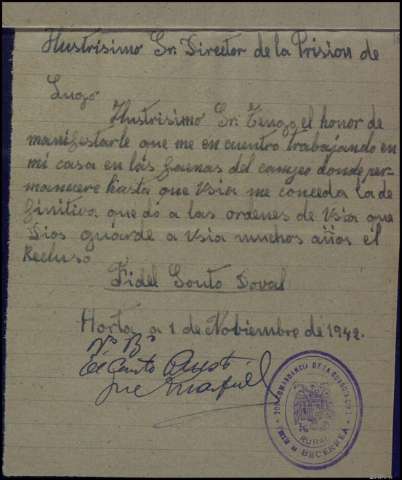 Ilustrisimo Sr. Director de la Prision de
Lugo
Ilustrisimo Sr. Tengo el honor de
manifestarle que me en cuentro trabajando en
mi casa en las faenas del campo donde per-
manecere hasta que Usia me conceda la de
finitiva. que dó a las ordenes de Usia que
Dios guarde a Usia muchos años el
Recluso
Fidel Souto Doval
Horta, a 1 de Noviembre de 1942.
Vº Bº
El
José
RURAL
BECERREA